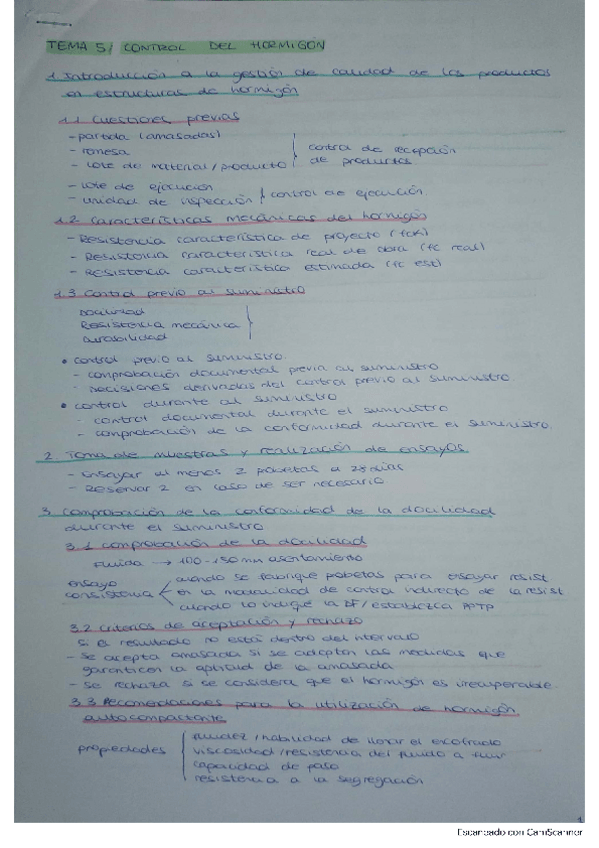 TEMA 5/ CONTROL DEL HORMIGÓN
1. Introducción a la gestión de calidad de los productos
en estructuras de hormigón
1.1 Cuestiones previas
- partida (amasadas)
- remesa
- lote de material/producto
control de recepción
de productos
- lote de ejecución
- unidad de inspección
control de ejecución
1.2 Características mecánicas del hormigón
- Resistencia característica de proyecto (fck)
- Resistencia característica real de obra (fc real)
- Resistencia característica estimada (fc est)
1.3 Control previo al suministro
Docilidad
Resistencia mecánica
durabilidad
• control previo al suministro
- comprobación documental previa al suministro
- Decisiones derivadas del control previo al suministro
• control durante al suministro
- control documental durante el suministro
- comprobación de la conformidad durante el suministro.
2. Toma de muestras y realización de ensayos
- Ensayar al menos 2 probetas a 28 días
- Reservar 2 en caso de ser necesario
3. Comprobación de la conformidad de la docilidad
durante el suministro
3.1 comprobación de la docilidad
Fluida → 100-150 mm asentamiento
ensayo
consistencia
cuando se fabrique probetas para ensayar resist
en la modalidad de control indirecto de la resist
cuando lo indique la DF/establezca PPTP
3.2 criterios de aceptación y rechazo
Si el resultado no está dentro del intervalo
- se acepta amasada si se adoptan las medidas que
garanticen la aptitud de la amasada
- se rechaza si se considera que el hormigón es irrecuperable.
3.3 Recomendaciones para la utilización de hormigón
autocompactante
propiedades
fluidez/habilidad de llenar el encofrado
viscosidad/resistencia del fluido a fluir
capacidad de paso
resistencia a la segregación
1
Escaneado con CamScanner